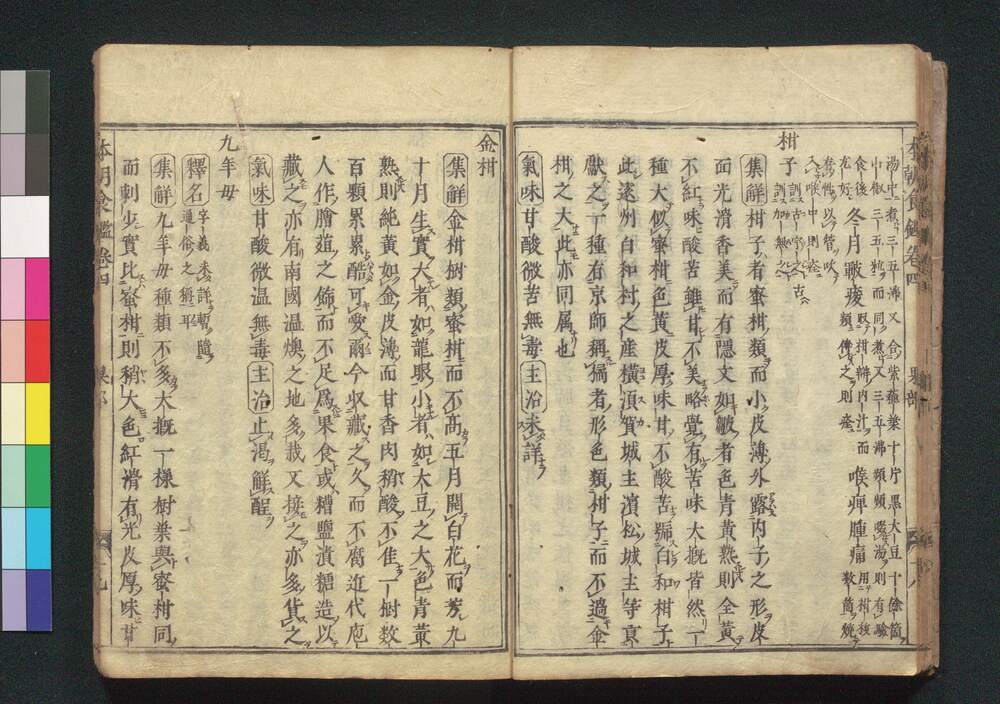 本朝食鑑卷四 果部
湯中煮三五沸又合紫蘇葉十片黒大豆十餘箇
中椒三五粒而同煮又三五沸類頻啜湯則有驗
食後冬月聤痠取柑瓣内汁而喉痺腫痛用柑核
柑子
集解柑子者蜜柑類而小皮薄外露内子之形皮
面光滑香美而有隱文如皺者色青黄熟則全黄
不紅味酸苦雖甘不美略覺有苦味大抵皆然一
種大似蜜柑色黄皮厚味甘不酸苦號白和柑子
此遠州白和村之産橫湏賀城主濱松城主等貢
獻之一種有京師稱獦者形色類柑子而不過金
柑之大此亦同属也
氣味甘酸微苦無毒主治未詳
金柑
集解金柑樹類蜜柑而不髙五月開白花而芳九
十月生實大者如龍眼小者如大豆之大色青黄
熟則純黄如金皮薄而甘香肉稍酸不佳一樹数
百顆累累酷可愛爾今収藏之久而不腐近代庖
人作膾葅之飾而不足爲果食或糟鹽漬糖造以
藏之亦有南國温燠之地多栽又接之亦多貨之
氣味甘酸微温無毒主治止渴觧酲
九年毋
釋名字義未詳暫隨
通俗之稱耳
集解九年毋種類不多大抵一樣樹葉與蜜柑同
而刺少實比蜜柑則稍大色紅滑有光皮厚味甘
本朝食鑑卷四 果部 十九